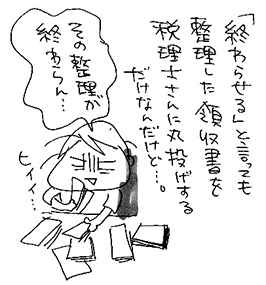 「終わらせる」と言っても
整理した領収書を
税理士さんに丸投げする
だけなんだけど…。
その整理が
終わらん…
ヒイィ…